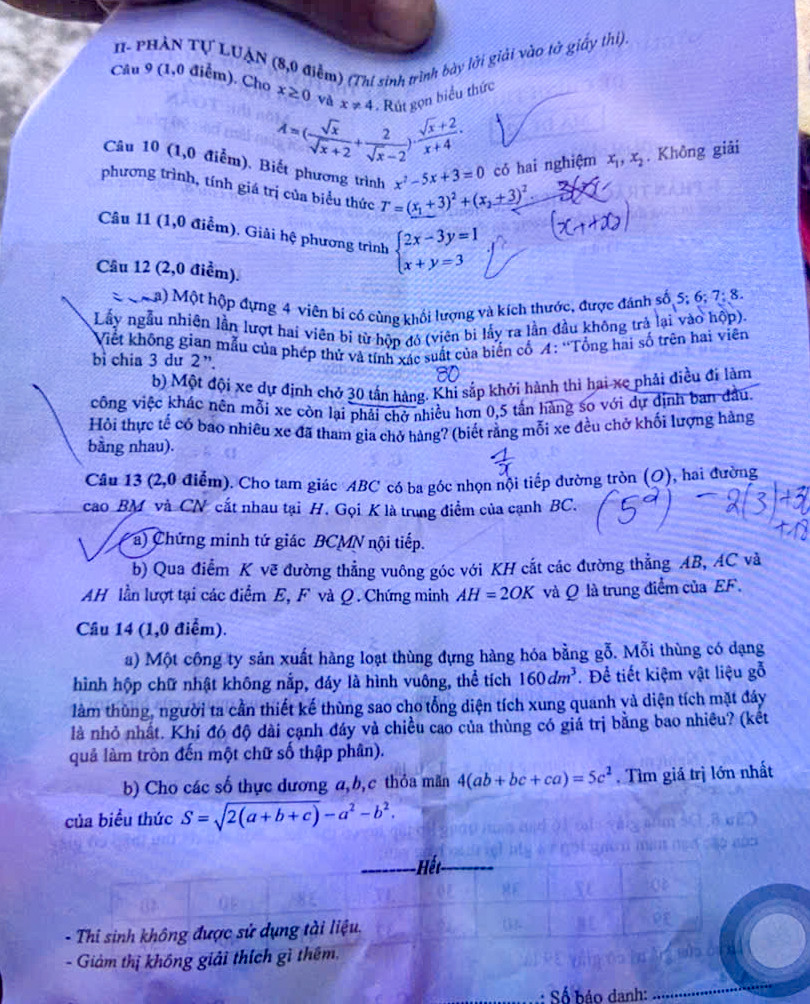 II- PHẦN TỰ LUẬN (8,0 điểm) (Thí sinh trình bày lời giải vào tờ giấy thi).
Câu 9 (1,0 điểm). Cho x ≥ 0 và x ≠ 4. Rút gọn biểu thức
A = (√x/(√x + 2) + 2/(√x − 2)) . (√x + 2)/(x + 4).
Câu 10 (1,0 điểm). Biết phương trình x² − 5x + 3 = 0 có hai nghiệm x₁, x₂. Không giải
phương trình, tính giá trị của biểu thức T = (x₁ + 3)² + (x₂ + 3)².
(x₁+x₂)
Câu 11 (1,0 điểm). Giải hệ phương trình { 2x − 3y = 1
x + y = 3 .
Câu 12 (2,0 điểm).
a) Một hộp đựng 4 viên bi có cùng khối lượng và kích thước, được đánh số 5; 6; 7; 8.
Lấy ngẫu nhiên lần lượt hai viên bi từ hộp đó (viên bi lấy ra lần đầu không trả lại vào hộp).
Viết không gian mẫu của phép thử và tính xác suất của biến cố A: “Tổng hai số trên hai viên
bi chia 3 dư 2”.
30
b) Một đội xe dự định chở 30 tấn hàng. Khi sắp khởi hành thì hai xe phải điều đi làm
công việc khác nên mỗi xe còn lại phải chở nhiều hơn 0,5 tấn hàng so với dự định ban đầu.
Hỏi thực tế có bao nhiêu xe đã tham gia chở hàng? (biết rằng mỗi xe đều chở khối lượng hàng
bằng nhau).
Câu 13 (2,0 điểm). Cho tam giác ABC có ba góc nhọn nội tiếp đường tròn (O), hai đường
cao BM và CN cắt nhau tại H. Gọi K là trung điểm của cạnh BC.
(5²) − 2(3)+30
+18
a) Chứng minh tứ giác BCMN nội tiếp.
b) Qua điểm K vẽ đường thẳng vuông góc với KH cắt các đường thẳng AB, AC và
AH lần lượt tại các điểm E, F và Q. Chứng minh AH = 2OK và Q là trung điểm của EF.
Câu 14 (1,0 điểm).
a) Một công ty sản xuất hàng loạt thùng đựng hàng hóa bằng gỗ. Mỗi thùng có dạng
hình hộp chữ nhật không nắp, đáy là hình vuông, thể tích 160dm³. Để tiết kiệm vật liệu gỗ
làm thùng, người ta cần thiết kế thùng sao cho tổng diện tích xung quanh và diện tích mặt đáy
là nhỏ nhất. Khi đó độ dài cạnh đáy và chiều cao của thùng có giá trị bằng bao nhiêu? (kết
quả làm tròn đến một chữ số thập phân).
b) Cho các số thực dương a,b,c thỏa mãn 4(ab + bc + ca) = 5c². Tìm giá trị lớn nhất
của biểu thức S = √(2(a + b + c)) − a² − b².
---------Hết---------
- Thí sinh không được sử dụng tài liệu.
- Giám thị không giải thích gì thêm.
: Số báo danh: